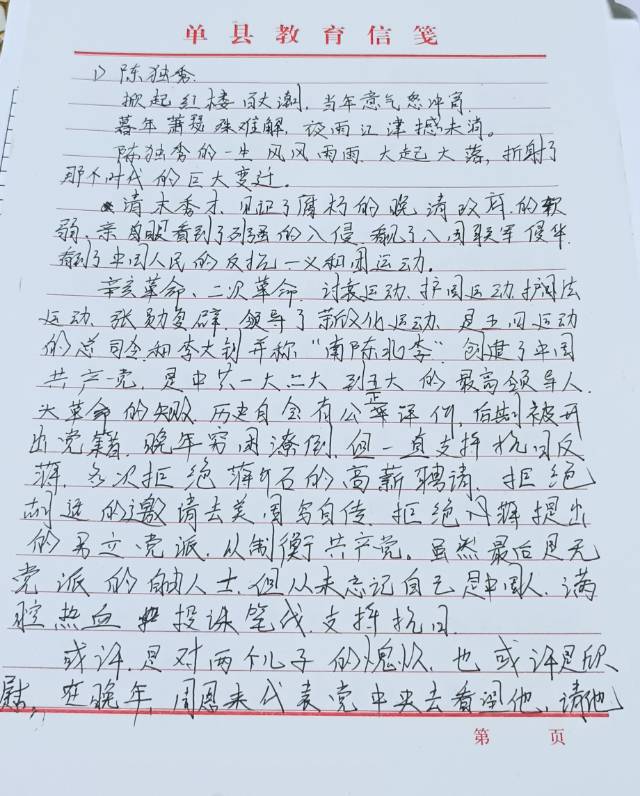 单县教育信笺
1) 陈独秀.
掀起红楼百丈潮,当年意气怒冲霄.
暮年萧瑟殊难解,夜雨江津撼未消。
陈独秀的一生风风雨雨,大起大落,折射了
那个时代的巨大变迁。
清末秀才,见证了腐朽的晚清政府的软
弱.亲自眼看到了列强的入侵.看见了八国联军侵华
看到了中国人民的反抗—义和团运动.
辛亥革命、二次革命.讨袁运动、护国运动、护国法
运动.张勋复辟.领导了新文化运动.是五四运动
的总司令.和李大钊并称“南陈北李”.创建了中国
共产党,是中共一大二大到五大的最高领导人.
大革命的失败,历史自会有公正评价,后期被开
出党籍.晚年穷困潦倒.但一直支持抗日反
蒋.多次拒绝蒋介石的高薪聘请.拒绝
胡适的邀请去美国写自传.拒绝蒋提出
的另立党派.从制衡共产党。虽然最后是无
党派的自由人士.但从未忘记自己是中国人.满
腔热血投诛笔伐.支持抗日.
或许.是对两个儿子的愧疚.也或许是欣
慰。在晚年,周恩来代表党中央去看望他、请他
第 页